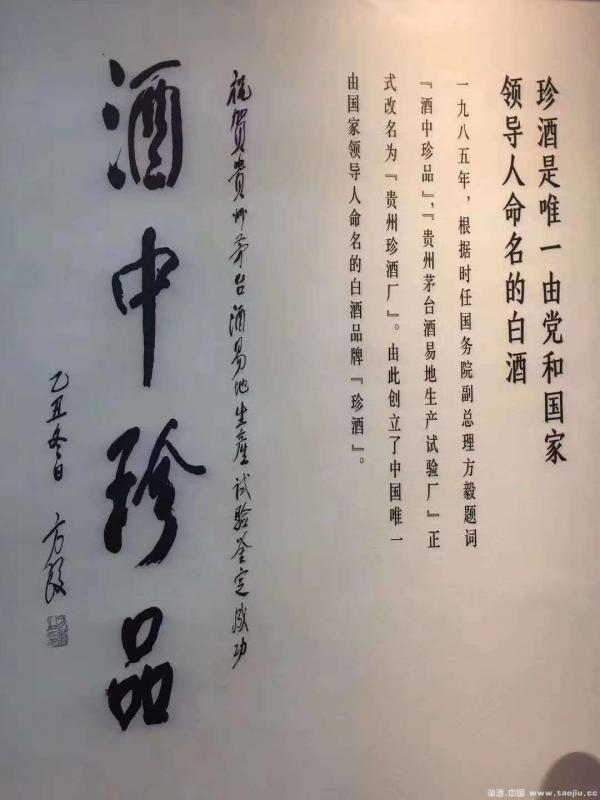 珍酒是唯一由党和国家
领导人命名的白酒
一九八五年，根据时任国务院副总理方毅题词
『酒中珍品』，『贵州茅台酒易地生产试验厂』正
式改名为『贵州珍酒厂』。由此创立了中国唯一
由国家领导人命名的白酒品牌『珍酒』。
祝贺贵州茅台酒易地生產试验鉴定成功
酒中珍品
乙丑冬日 方毅
淘酒.中国 www.taojiu.cc